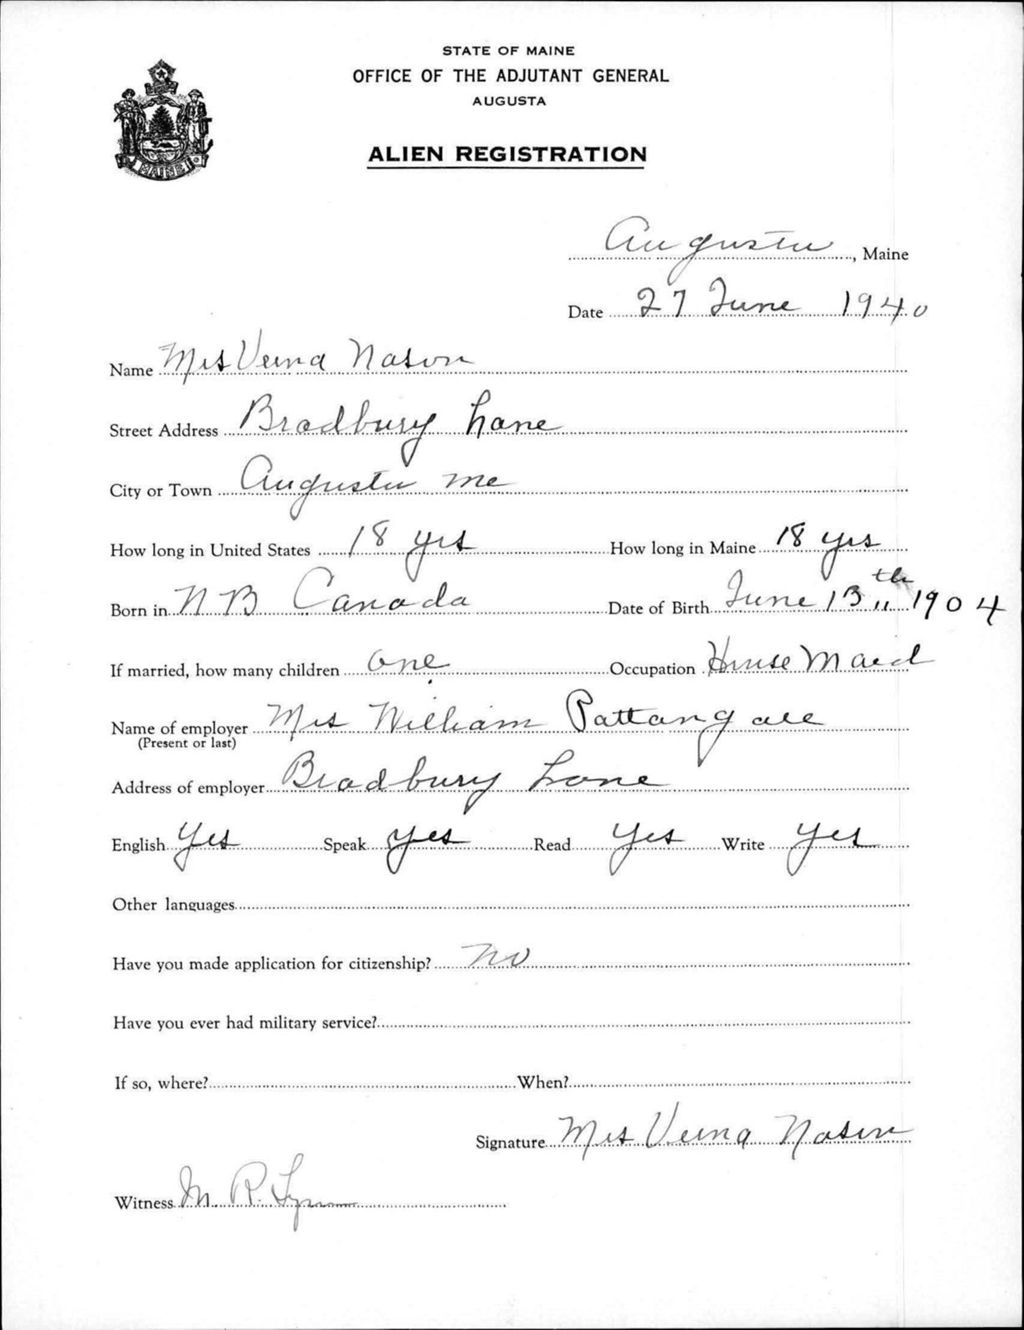 STATE OF MAINE
OFFICE OF THE ADJUTANT GENERAL
AUGUSTA
ALIEN REGISTRATION
MAINE
Augusta, Maine
Date 27 June 1940
Name Mrs Verna Nason
Street Address Bradbury Lane
City or Town Augusta Me
How long in United States 18 yrs How long in Maine 18 yrs
Born in N B Canada Date of Birth June 13th 1904
If married, how many children one Occupation House Maid
Name of employer Mrs William Pattangall
(Present or last)
Address of employer Bradbury Lane
English Yes Speak yes Read Yes Write Yes
Other languages
Have you made application for citizenship? No
Have you ever had military service?
If so, where? When?
Signature Mrs Verna Nason
Witness M. R. Lynn